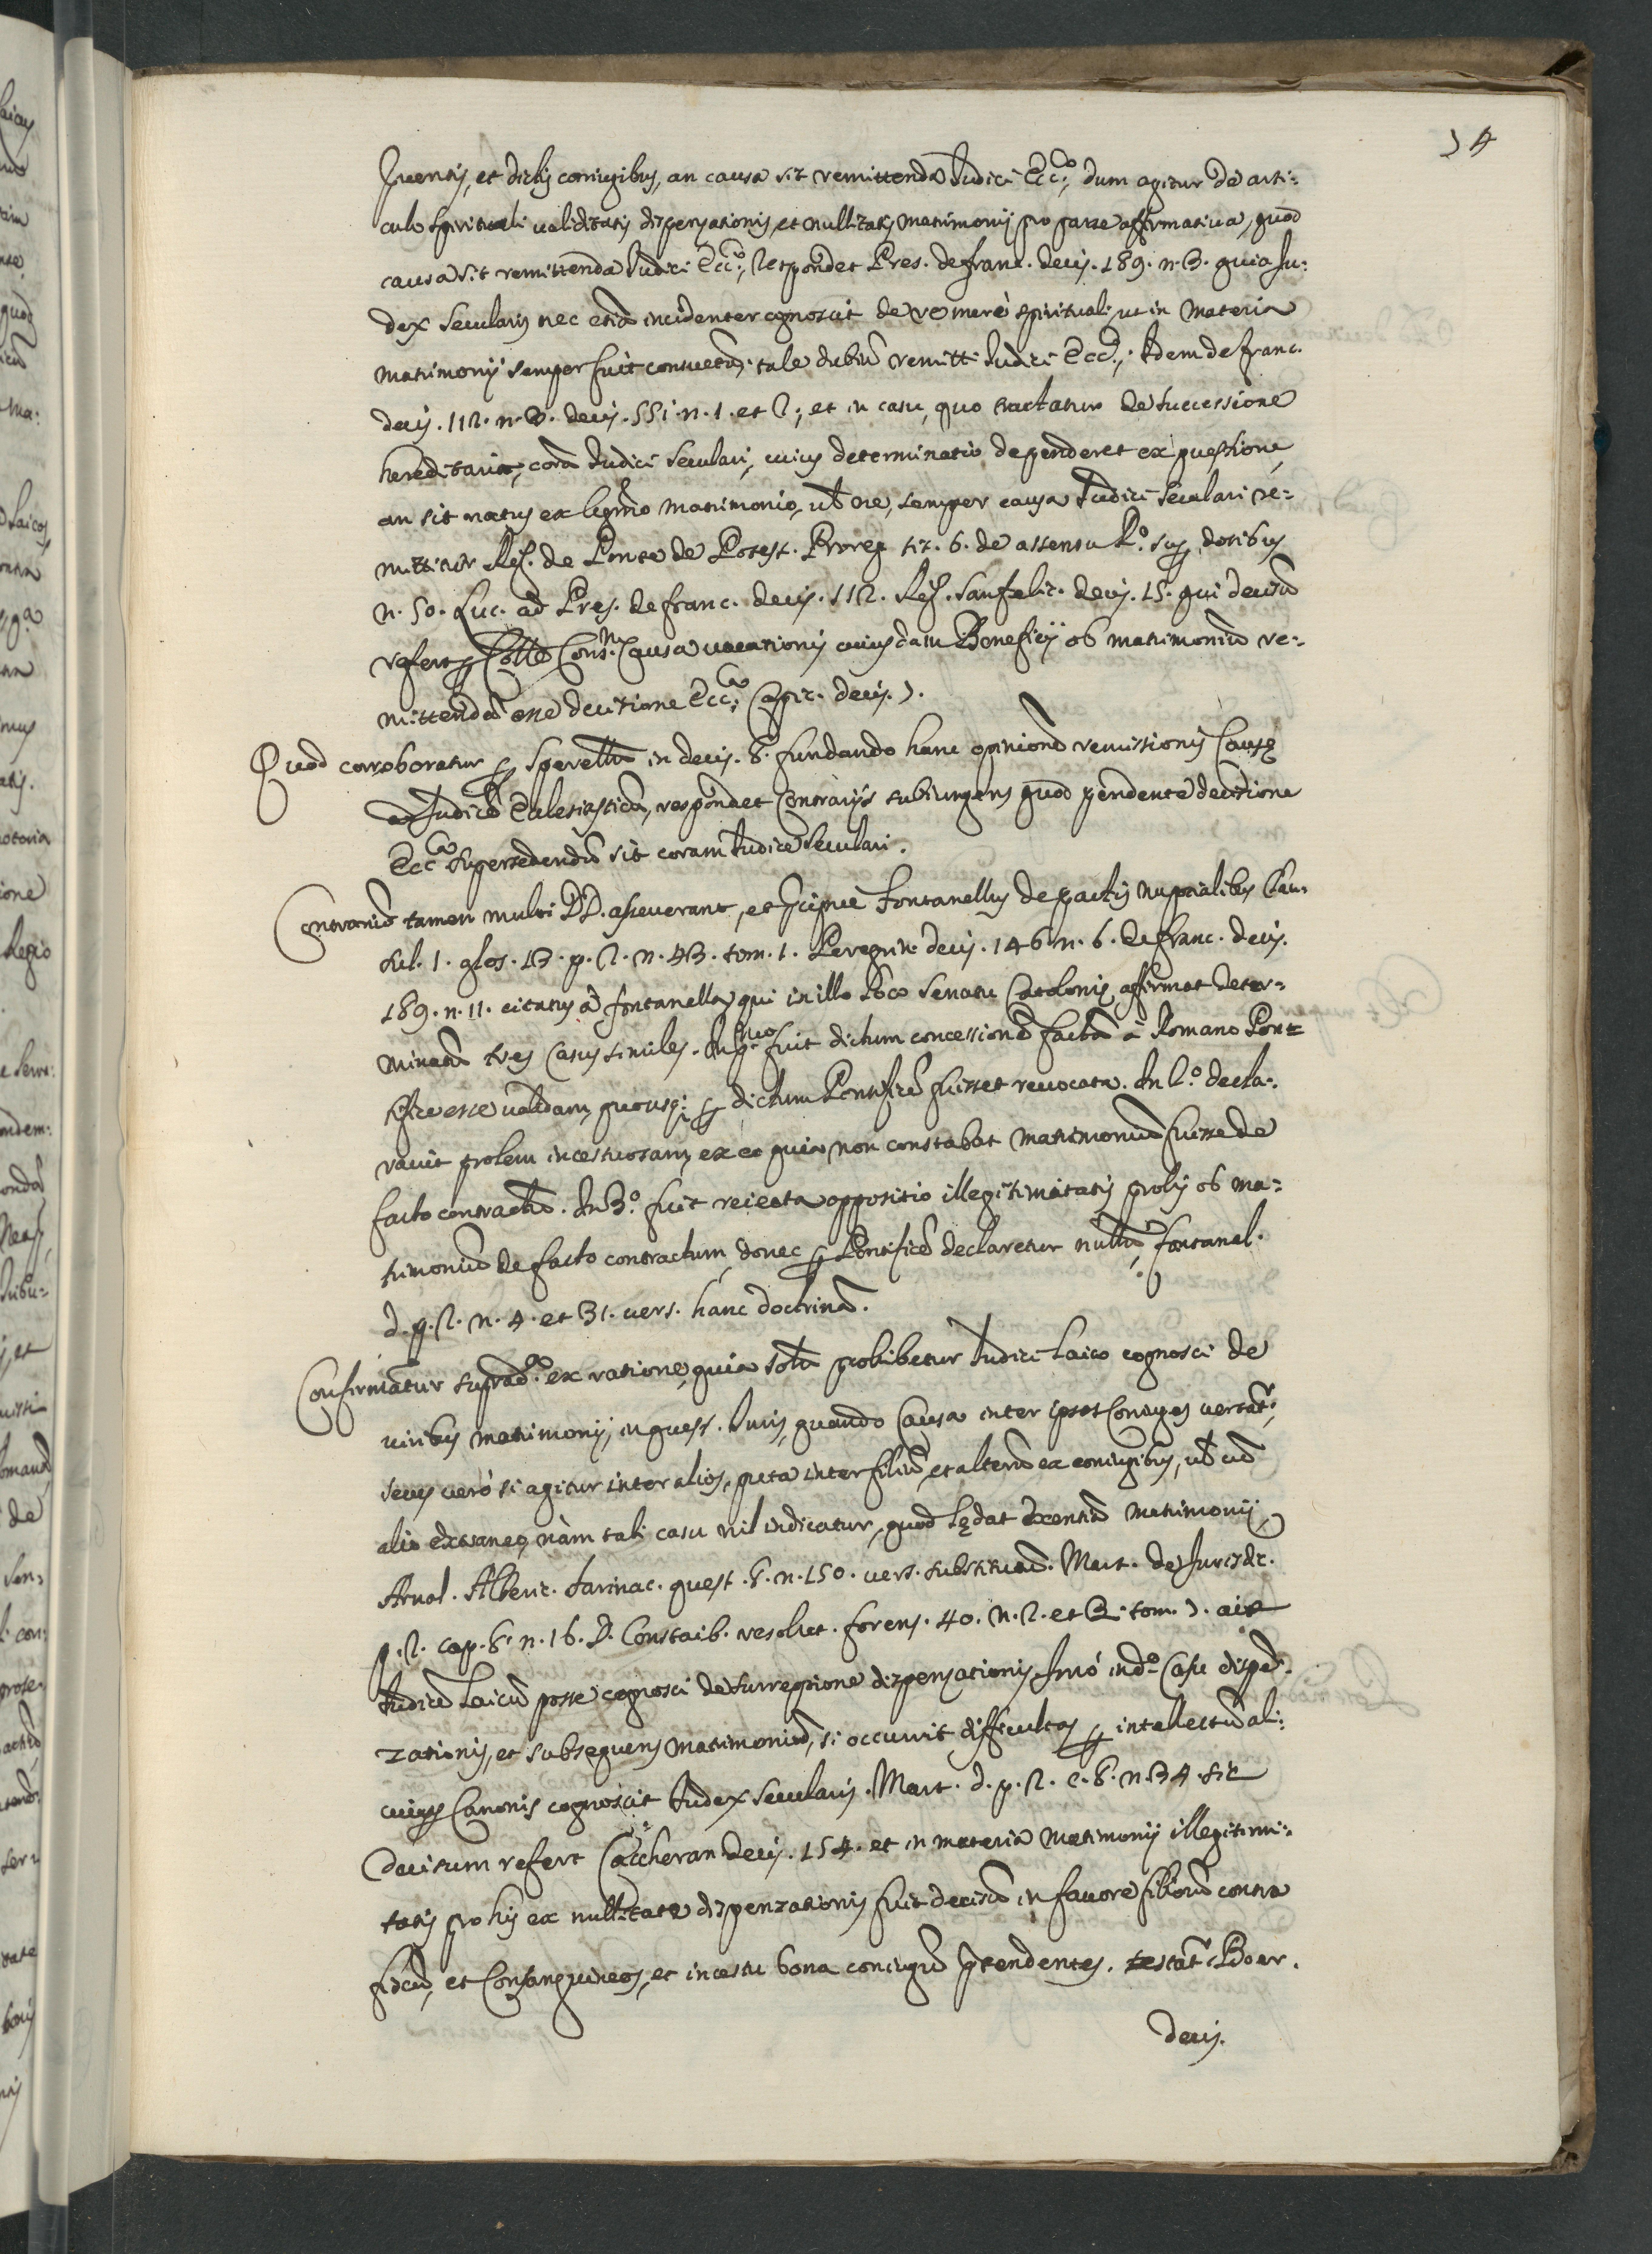 34
Inventis, et dictis coniugibus, an causa sit remittenda Iudici Ecc.co, dum agitur de arti:
culo spirituali validitatis dispensationis, et nullitatis matrimonij pro parte affirmativa, quod
causa sit remittenda Iudici Ecc.co, respondet Pres. de franc. decis. 189. n. 3. quia Iu:
dex secularis nec etiã incidenter cognoscit de re merè spirituali, ut in materia
matrimonij semper fuit consuetũ, tale dubiũ remitti Iudici Ecc.co; Idem de franc.
decis. 112. n. 8. decis. 551. n. 1. et 2; et in casu, quo tractatur de successione
hereditaria, corã Iudici seculari, cuius determinatio dependeret ex questione,
an sit natus ex legmo matrimonio, vel ne, semper causa Iudici seculari re=
mittitur Reg. de Ponte de Potest. Proreg. tit. 6. de assensu R.o sup. dotibus
n. 50. Luc. ad Pres. de franc. decis. 112. Reg. Sanfelic. decis. 15. qui decisũ
refert p Colle Cons.m Causa vacationis cuiusdam Beneficij ob matrimoniũ re=
mittendã esse decisione Ecc.ca Capic. decis. 3.
Quod corroboratur p Sperellũ in decis. 8. fundando hanc opinionẽ remissionis Causę
ad Iudicẽ Eclesiasticũ, respondet Contrarijs subiungens quod pendente decisione
Ecc.ca supersedendũ sit coram Iudice seculari.
Contrariũ tamen multi DD. asseverant, et precipuè Fontanellus de pactis nuptialibus clau=
sul. 1. glos. 13. p. 2. n. 43. tom. 1. Peregrin. decis. 146. n. 6. de franc. decis.
189. n. 11. citatus à fontanella, qui in illo loco senatu Catolonis affirmat deter=
minatũ tres casus similes. In p.mo fuit dictum concessionẽ factã à Romano Ponti=
fice esse validam, quousq; p dictum Pontificẽ fuisset revocata. In 2.o decla:
ravit prolem incestuosam, ex eo quia non constabat matrimoniũ fuisse de
facto contractũ. In 3.o fuit reiecta oppositio illegitimitatis prolis ob ma=
trimoniũ de facto contractum, donec p Pontificẽ declaretur nullũ, fontanel.
d. p. 2. n. 4. et 31. vers. hanc doctrinã.
Confirmatur suprad.a ex ratione, quia solũ prohibetur Iudici Laico cognosci de
viribus matrimonij, in quest. Iuris, quando Causa inter ipsos Coniuges versatr,
secus verò si agitur inter alios, puta inter filiũ, et alterũ ex coniugibus, vel cũ
alio extraneo, nàm tali casu nil indicatur, quod lędat essentiã matrimonij
Arnal. Alberic. farinac. quest. 8. n. 150. vers. substitutũ. Mart. de Iurisdic.
p. 2. cap. 8. n. 16. D. Constaib. resolut. forens. 40. n. 2. et 3. tom. 3. ait
Iudicẽ Laicũ posse cognosci de surreptione dispensationis. Imò in d.o casu dispẽ:
zationis, et subsequens matrimoniũ, si occurrit difficultas p intellectũ ali:
cuius Canonis cognoscit Iudex secularis. Mart. d. p. 2. c. 8. n. 34. sic
Decisum refert Caccheran decis. 154. et in materia matrimonij illegitimi:
tatis prolis ex nullitate dispenzationis fuit decisũ in favore filiorũ contra
fiscũ, et Consanguineos, et incestu bona coniugũ pretendentes. testatr Boer.
decis.